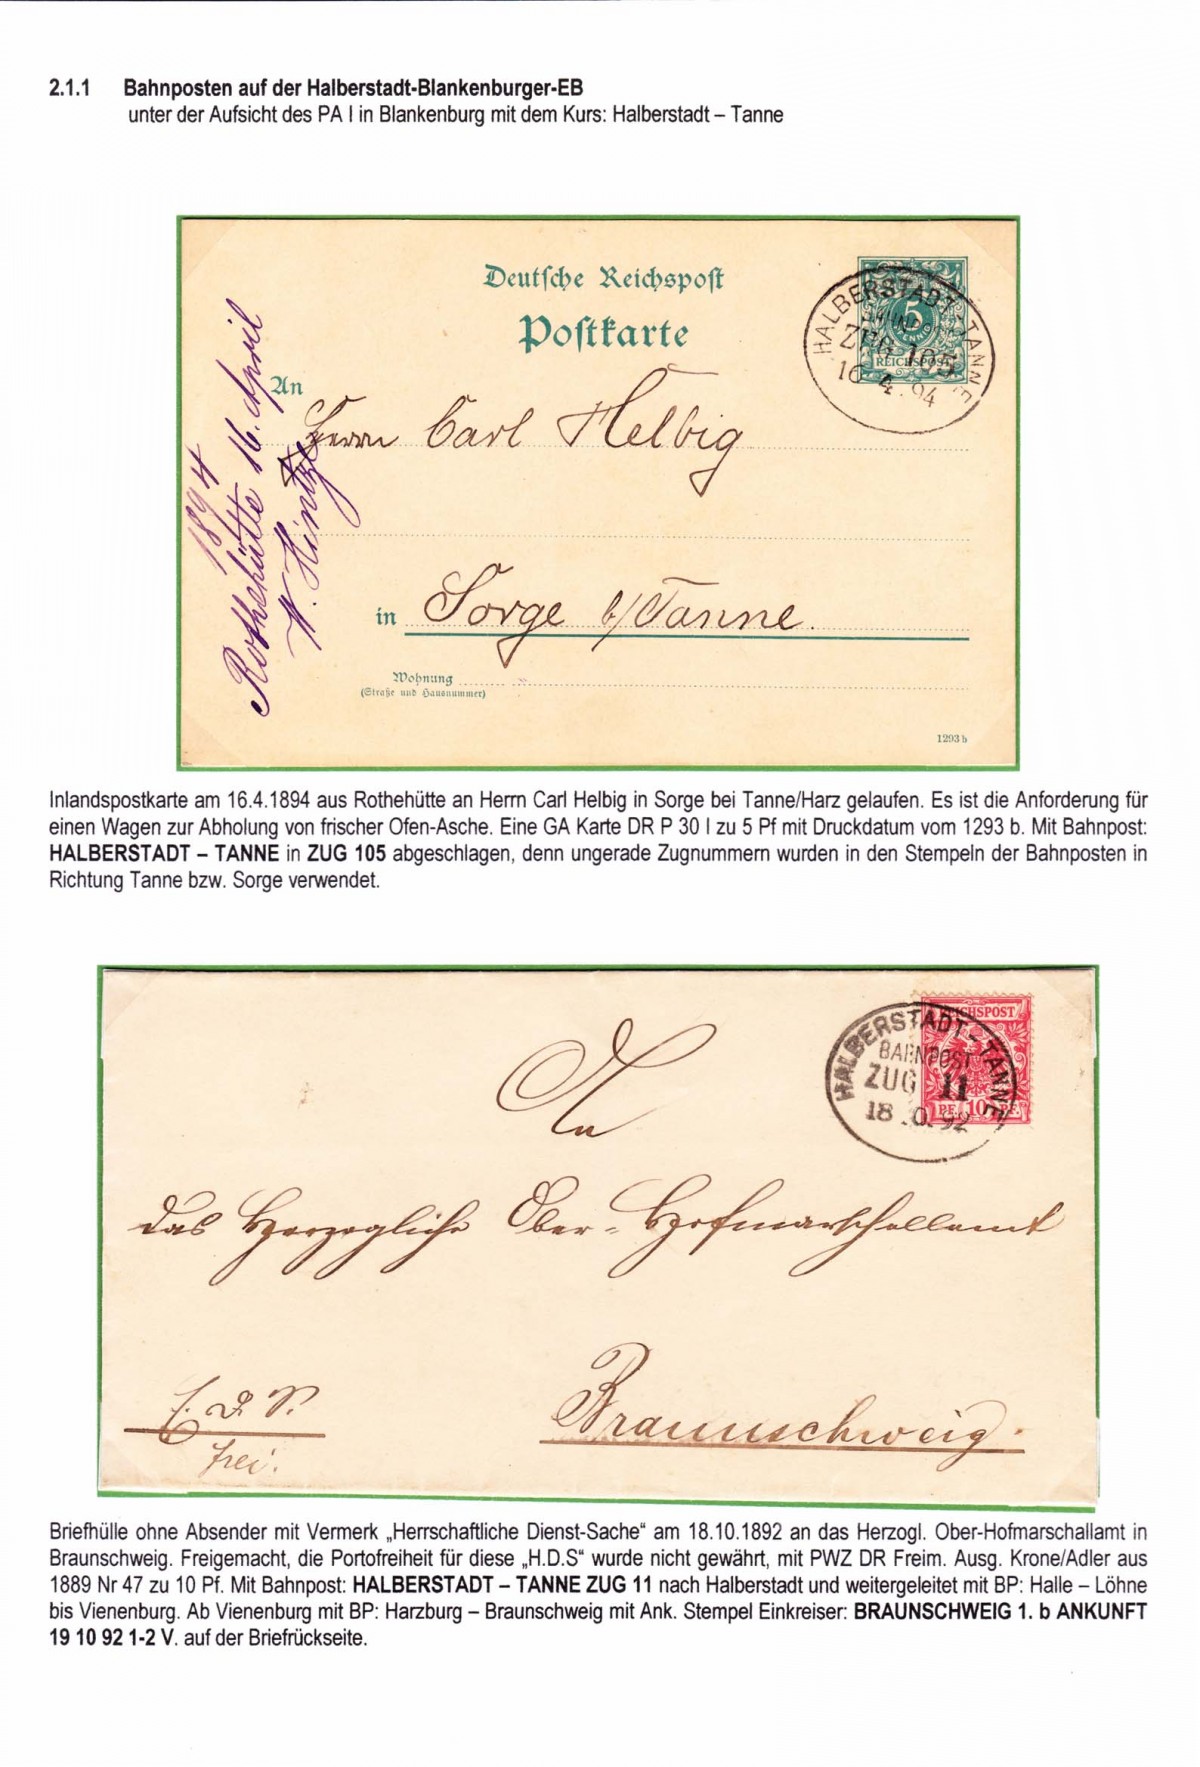 2.1.1 Bahnposten auf der Halberstadt-Blankenburger-EB
unter der Aufsicht des PA I in Blankenburg mit dem Kurs: Halberstadt – Tanne
Deutsche Reichspost
Postkarte
HALBERSTADT - TANNE
BAHNPOST
ZUG 105
16 4. 94
5
PFENNIG
REICHSPOST
An
Herrn Carl Helbig
in Sorge b/Tanne.
Wohnung
(Straße und Hausnummer)
1293 b
1894
Rothehütte 16. April
W. Hintze
Inlandspostkarte am 16.4.1894 aus Rothehütte an Herrn Carl Helbig in Sorge bei Tanne/Harz gelaufen. Es ist die Anforderung für
einen Wagen zur Abholung von frischer Ofen-Asche. Eine GA Karte DR P 30 I zu 5 Pf mit Druckdatum vom 1293 b. Mit Bahnpost:
HALBERSTADT – TANNE in ZUG 105 abgeschlagen, denn ungerade Zugnummern wurden in den Stempeln der Bahnposten in
Richtung Tanne bzw. Sorge verwendet.
REICHSPOST
PF. 10 PF.
HALBERSTADT - TANNE
BAHNPOST
ZUG 11
18 10. 92
An
das Herzogliche Ober-Hofmarschallamt
Braunschweig.
H. D. S.
frei.
Briefhülle ohne Absender mit Vermerk „Herrschaftliche Dienst-Sache“ am 18.10.1892 an das Herzogl. Ober-Hofmarschallamt in
Braunschweig. Freigemacht, die Portofreiheit für diese „H.D.S“ wurde nicht gewährt, mit PWZ DR Freim. Ausg. Krone/Adler aus
1889 Nr 47 zu 10 Pf. Mit Bahnpost: HALBERSTADT – TANNE ZUG 11 nach Halberstadt und weitergeleitet mit BP: Halle – Löhne
bis Vienenburg. Ab Vienenburg mit BP: Harzburg – Braunschweig mit Ank. Stempel Einkreiser: BRAUNSCHWEIG 1. b ANKUNFT
19 10 92 1-2 V. auf der Briefrückseite.